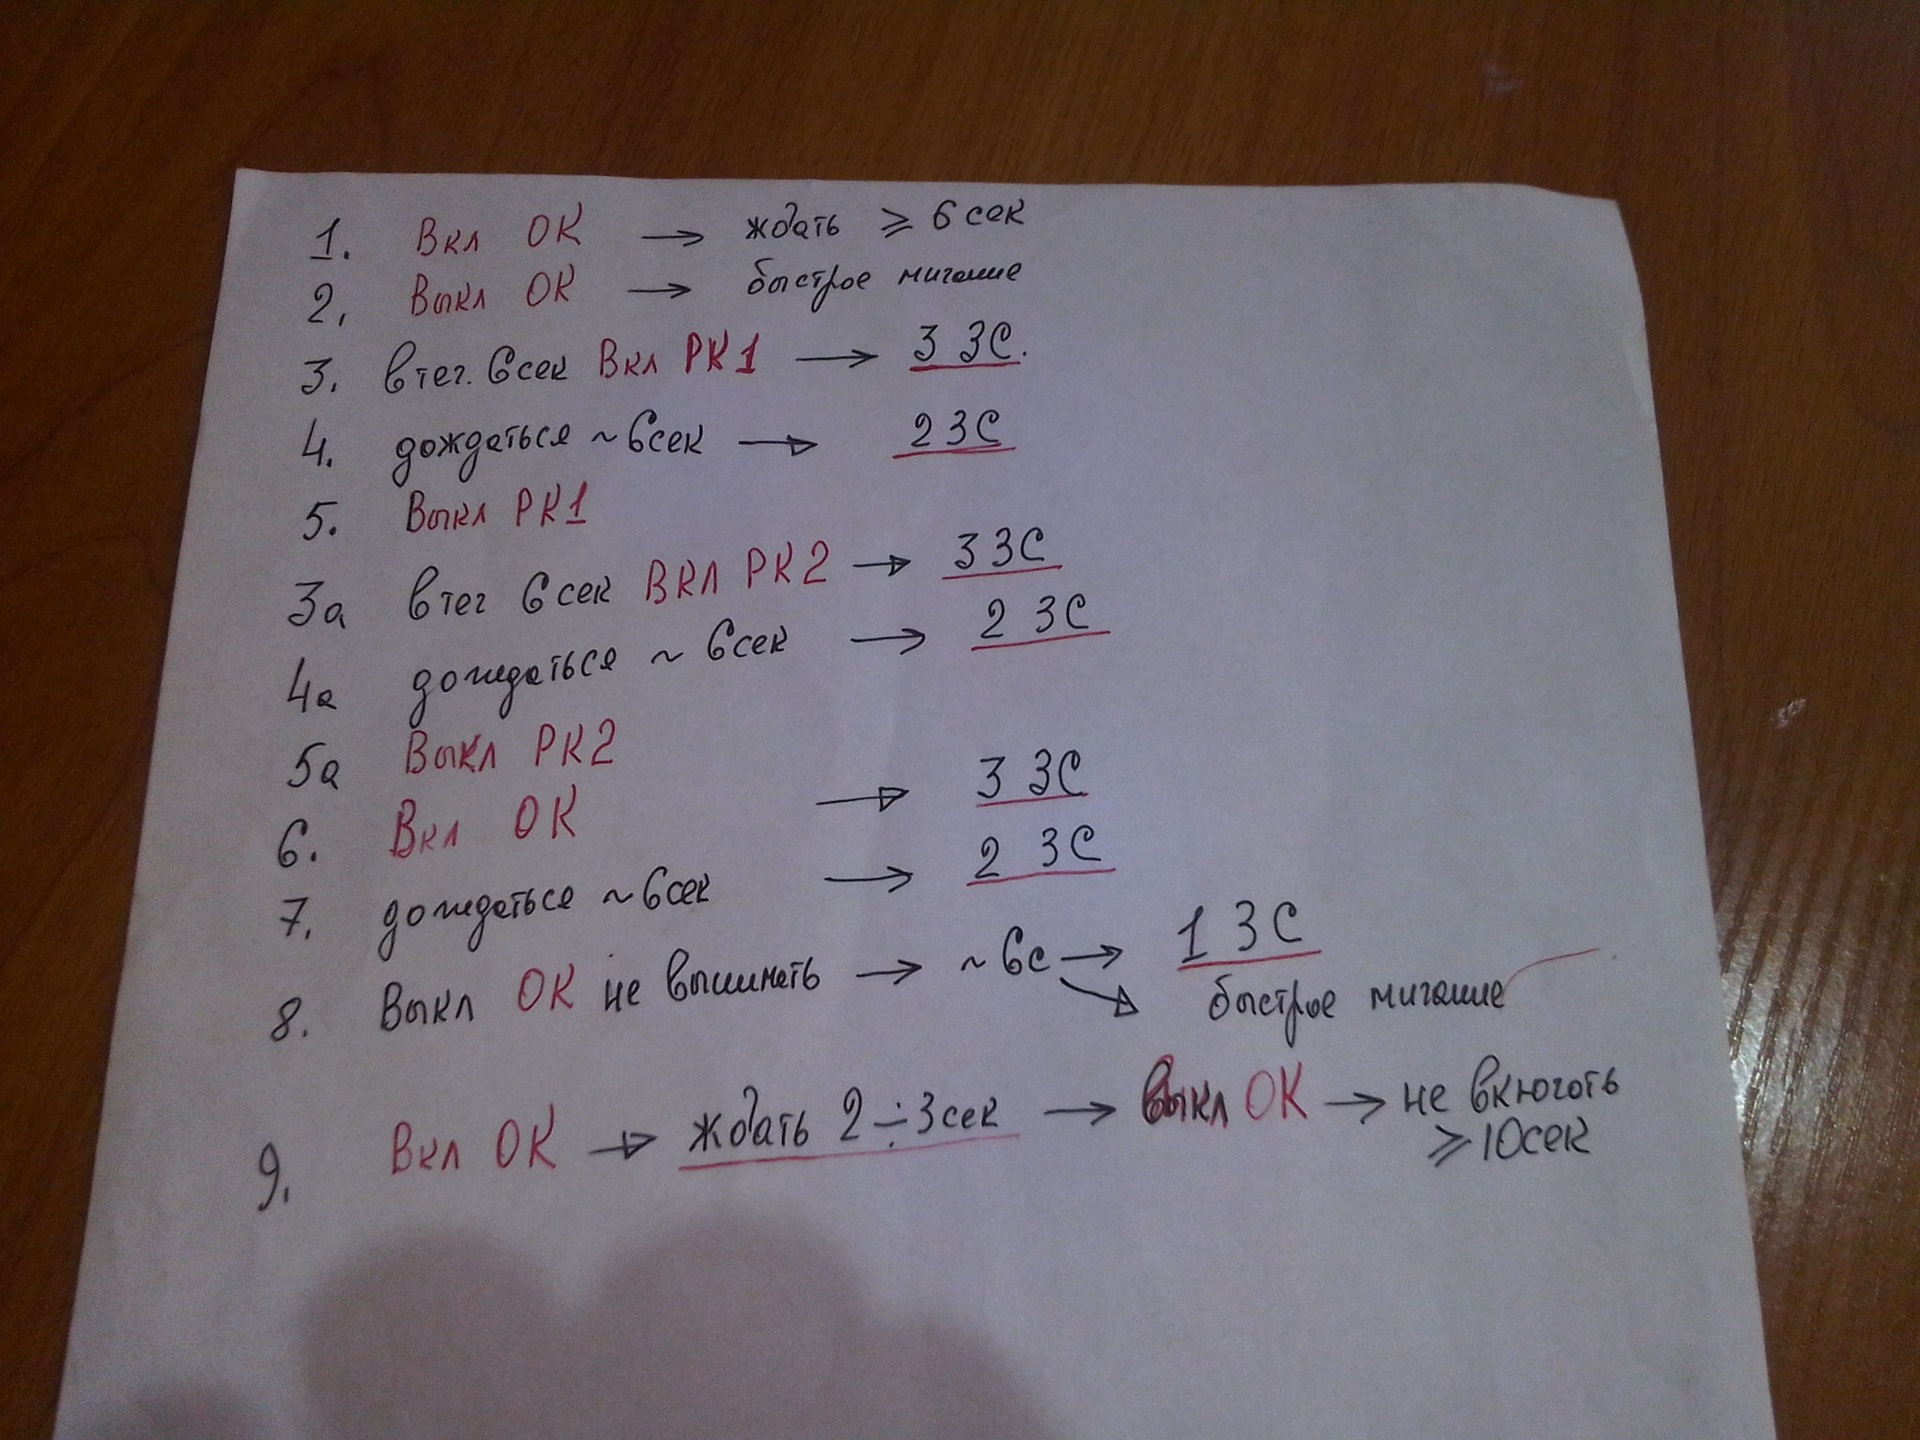 1. Вкл ОК → ждать ≥ 6 сек
2. Выкл ОК → быстрое мигание
3. в теч. 6сек Вкл РК1 → 3 ЗС.
4. дождаться ~ 6сек → 2 ЗС
5. Выкл РК1
3а в теч 6 сек ВКЛ РК2 → 3 ЗС
4а дождаться ~ 6сек → 2 ЗС
5а Выкл РК2
6. Вкл ОК → 3 ЗС
7. дождаться ~ 6сек → 2 ЗС
8. Выкл ОК не вынимать → ~ 6с → 1 ЗС
быстрое мигание
9. Вкл ОК → ждать 2÷3сек → Выкл ОК → не включать
≥ 10сек